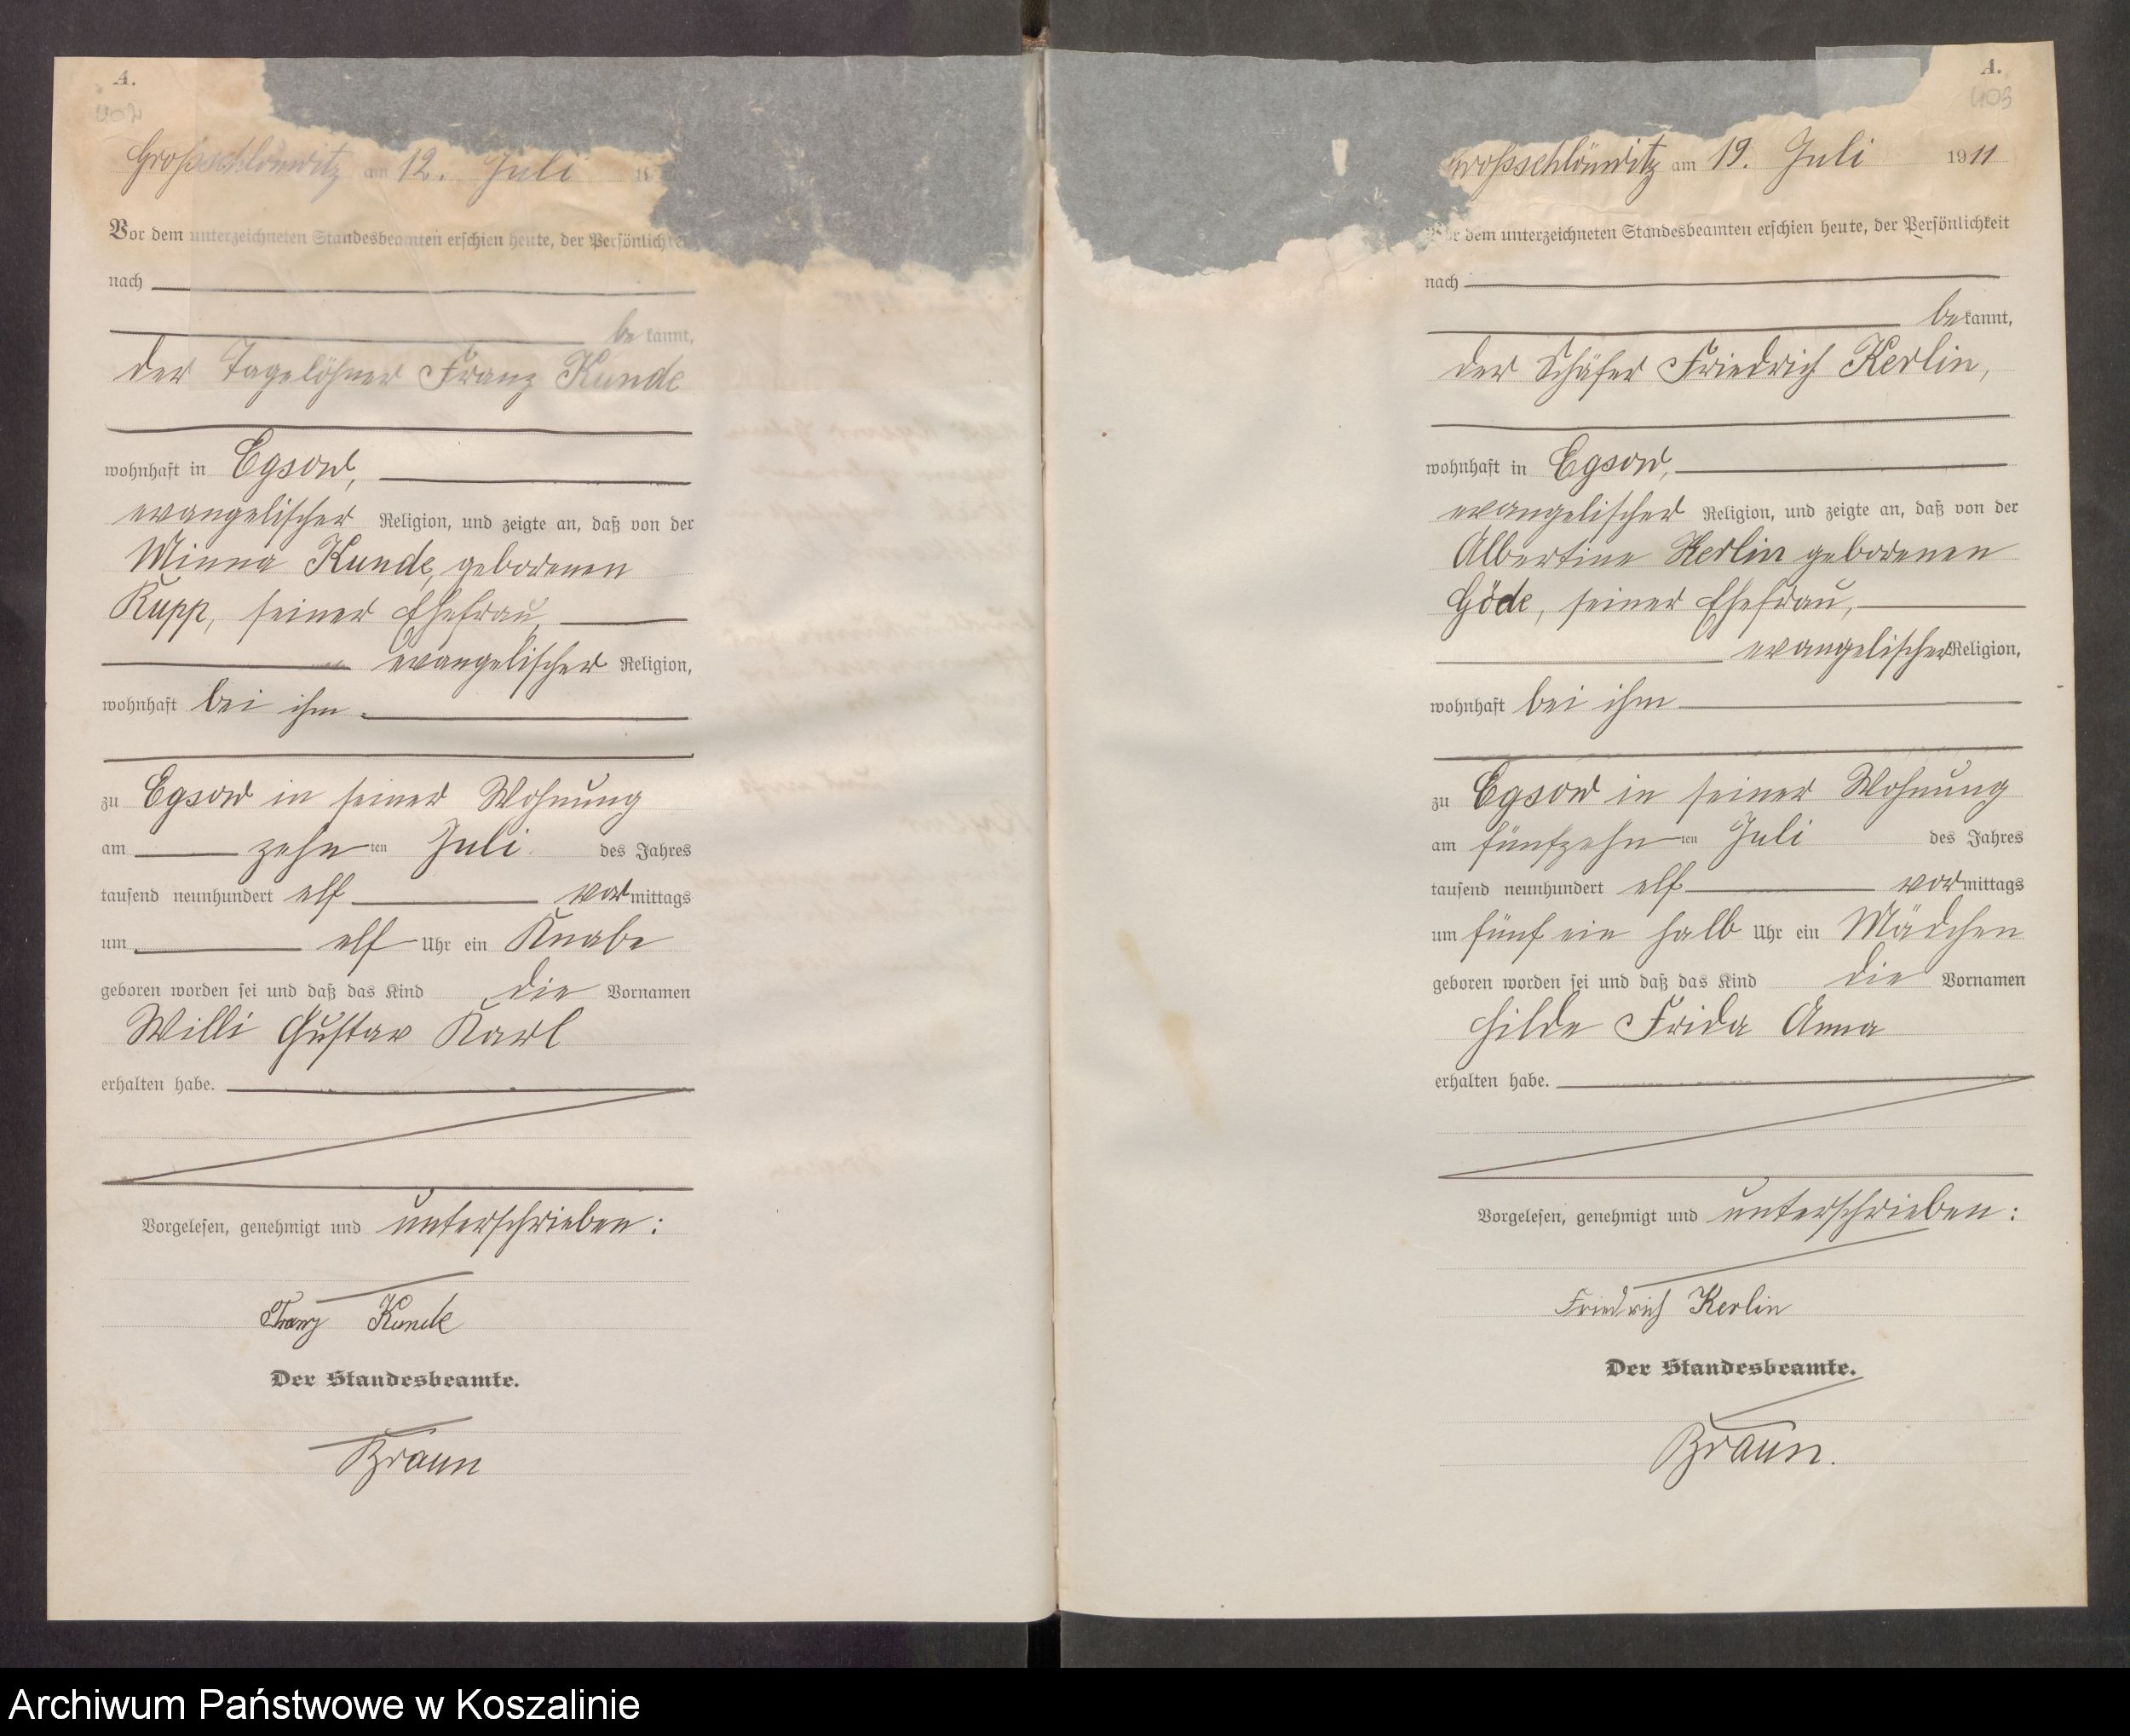 A.
402
Großschlönwitz am 12. Juli 19
Vor dem unterzeichneten Standesbeamten erschien heute, der Persönlichkei
nach
be kannt,
der Tagelöhner Franz Kunde
wohnhaft in Egsow,
evangelischer Religion, und zeigte an, daß von der
Minna Kunde, geborenen
Kupp, seiner Ehefrau,
evangelischer Religion,
wohnhaft bei ihm
zu Egsow in seiner Wohnung
am zehn ten Juli des Jahres
tausend neunhundert elf vor mittags
um elf Uhr ein Knabe
geboren worden sei und daß das Kind die Vornamen
Willi Gustav Karl
erhalten habe.
Vorgelesen, genehmigt und unterschrieben:
Franz Kunde
Der Standesbeamte.
Braun
A.
403
Großschlönwitz am 19. Juli 1911
Vor dem unterzeichneten Standesbeamten erschien heute, der Persönlichkeit
nach
be kannt,
der Schäfer Friedrich Kerlin,
wohnhaft in Egsow,
evangelischer Religion, und zeigte an, daß von der
Albertine Kerlin geborenen
Göde, seiner Ehefrau,
evangelischer Religion,
wohnhaft bei ihm
zu Egsow in seiner Wohnung
am fünfzehn ten Juli des Jahres
tausend neunhundert elf vor mittags
um fünf ein halb Uhr ein Mädchen
geboren worden sei und daß das Kind die Vornamen
Hilde Frida Anna
erhalten habe.
Vorgelesen, genehmigt und unterschrieben:
Friedrich Kerlin
Der Standesbeamte.
Braun.
Archiwum Państwowe w Koszalinie